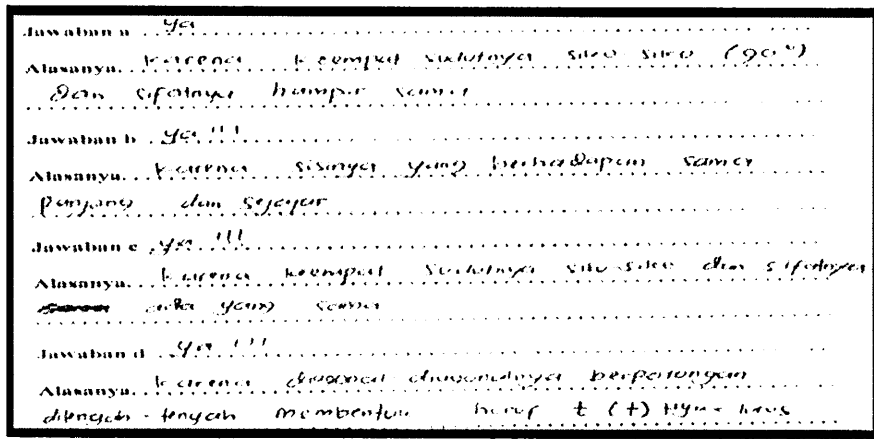 Jawaban a ya
Alasanya. karena keempat sudutnya siku siku (90°)
dan sifatnya hampir sama
Jawaban b ya !!!
Alasanya. karena sisinya yang berhadapan sama
panjang dan sejajar
Jawaban c ya !!!
Alasanya. karena keempat sudutnya siku-siku dan sifatnya
ada yang sama
Jawaban d ya !!!
Alasanya. karena diagonal diagonalnya berpotongan
ditengah-tengah membentuk huruf t (+)